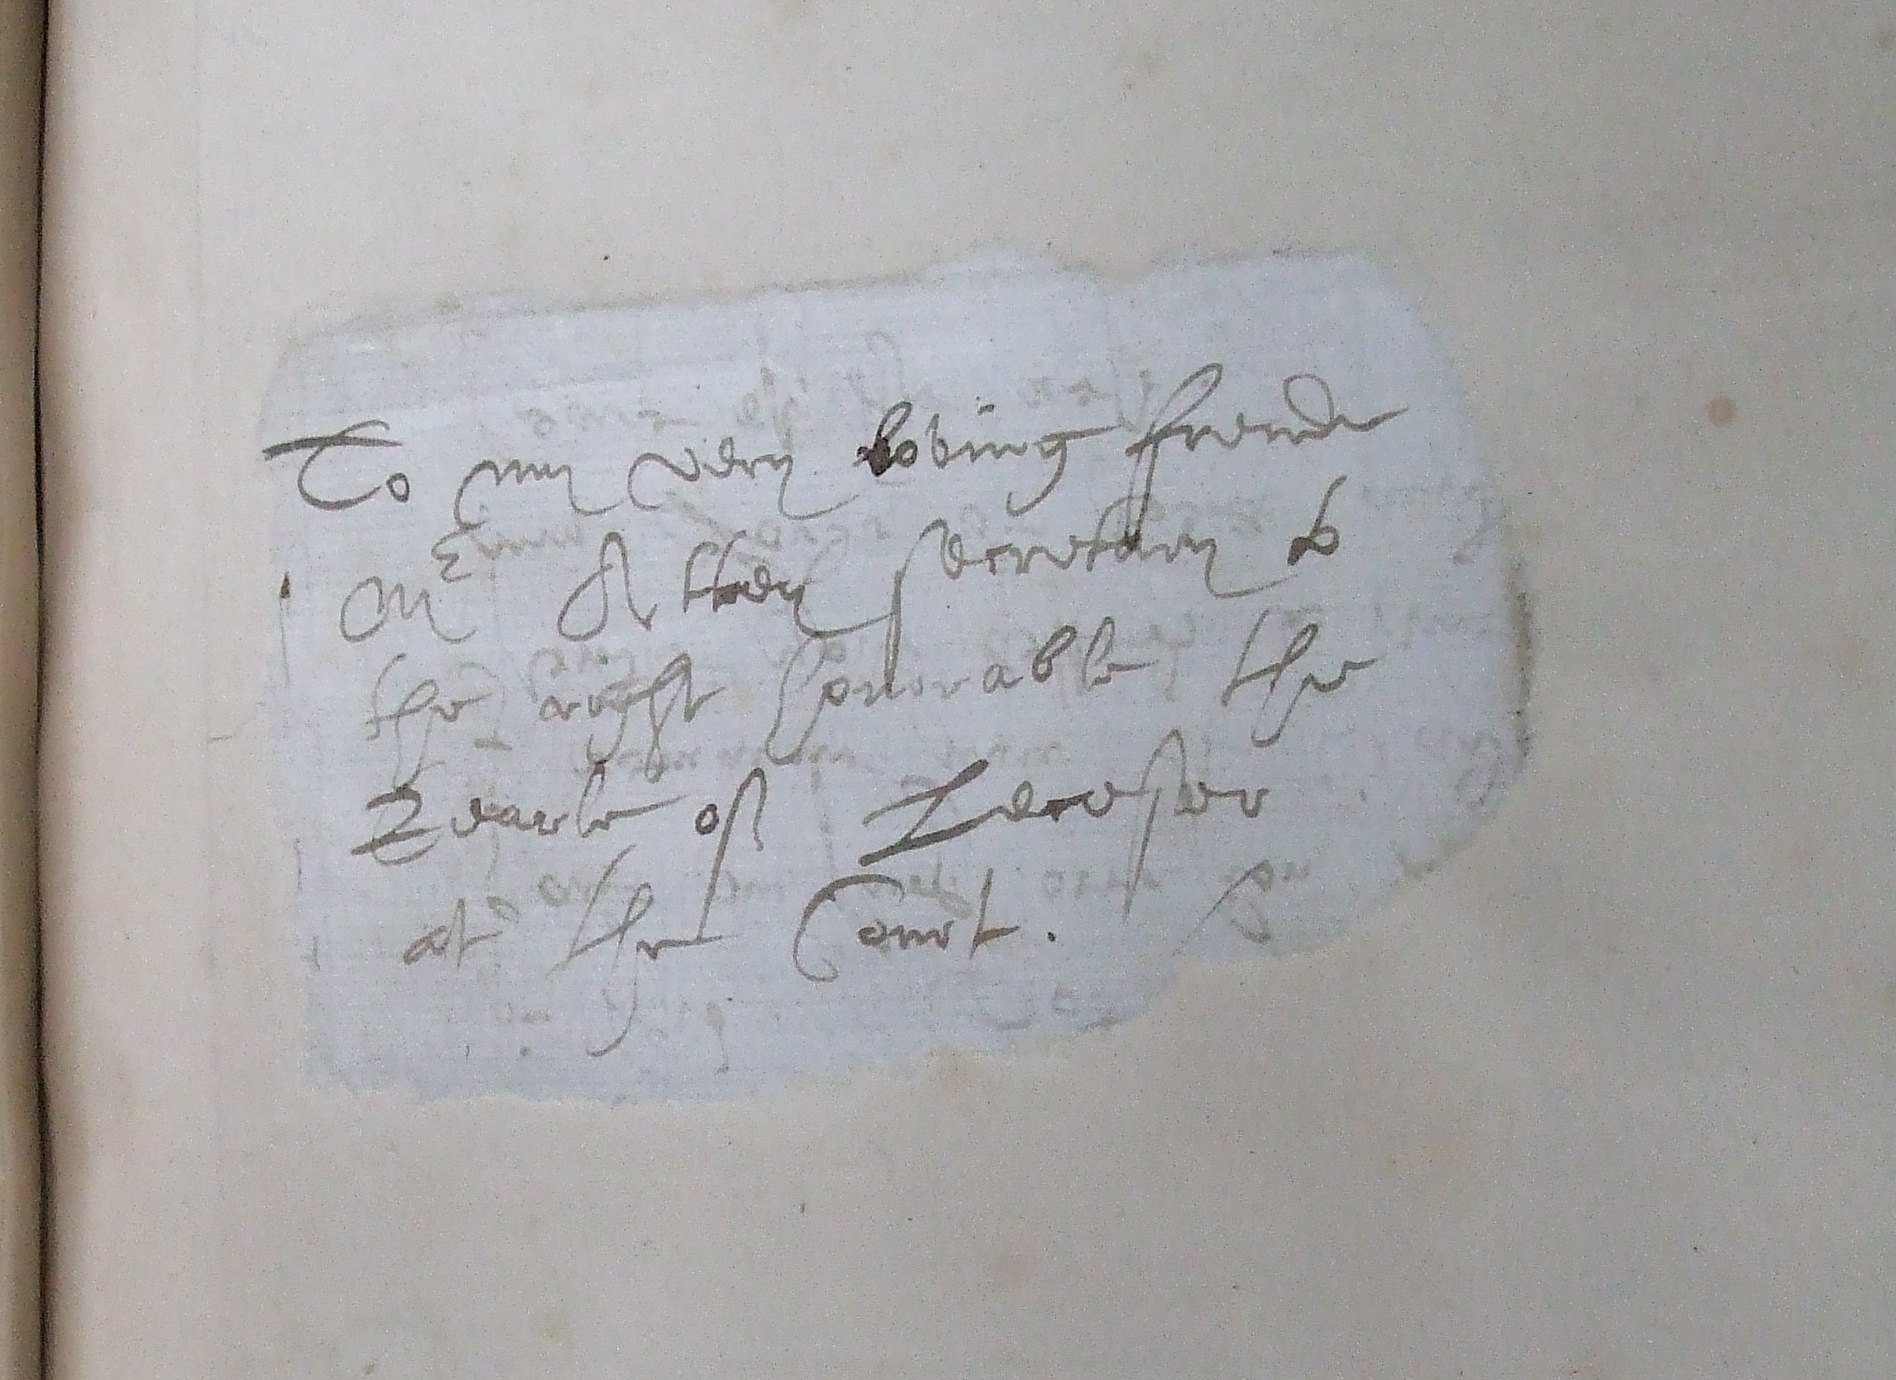 To my very loving ffrende
Mr Attey secretary to
the right honorable the
Earle of Leicester
at the Court.